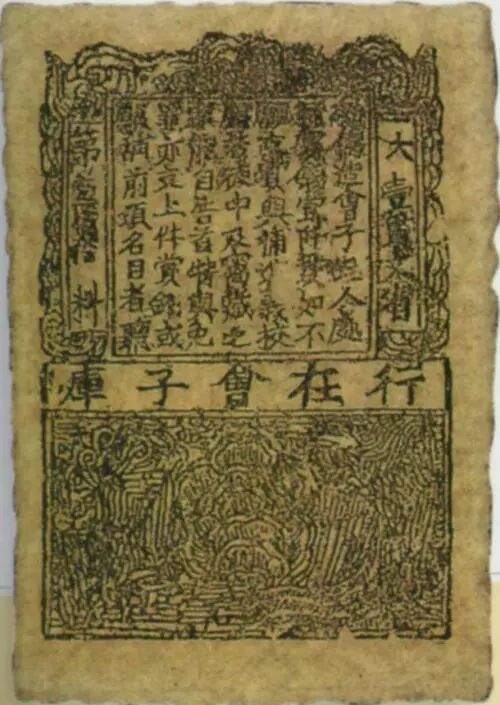 大壹貫文省
偽造會子犯人處
斬賞錢壹阡貫如不
願支賞與補進義校
尉若徒中及窩藏之
家能自告首特與免
罪亦支上件賞錢或
願補前項名目者聽
第 料
行在會子庫